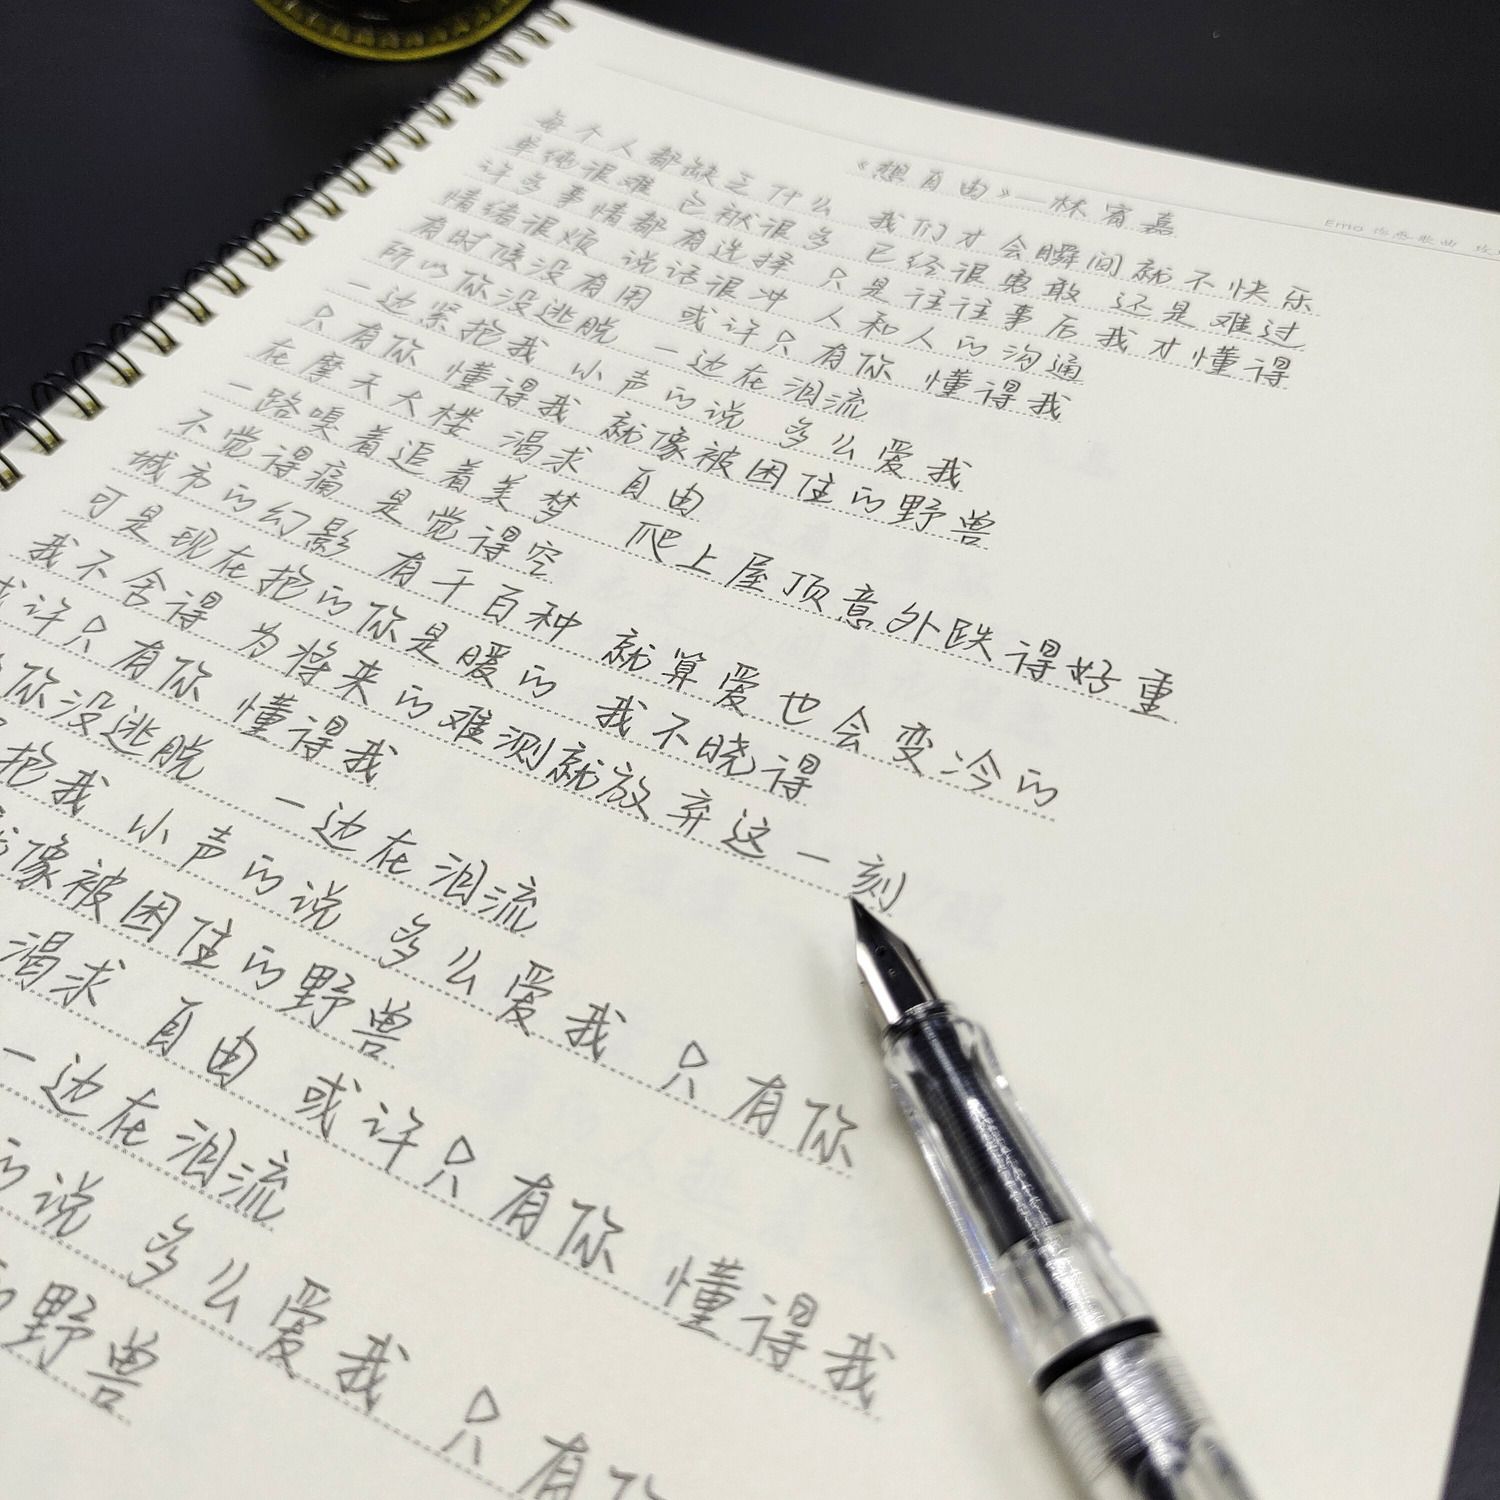 《想自由》—林宥嘉
Emo
每个人都缺乏什么 我们才会瞬间就不快乐
单纯很难 包袱很多 已经很勇敢 还是难过
许多事情都有选择 只是往往事后我才懂得
情绪很烦 说话很冲 人和人的沟通
有时候没有用 或许只有你 懂得我
所以你没逃脱 一边在泪流
一边紧抱我 小声的说 多么爱我
只有你 懂得我 就像被困住的野兽
在摩天大楼 渴求 自由
一路嗅着追着美梦 爬上屋顶意外跌得好重
不觉得痛 是觉得空
城市的幻影 有千百种 就算爱也会变冷的
可是现在抱的你是暖的 我不晓得
我不舍得 为将来的难测就放弃这一刻
或许只有你 懂得我
你没逃脱 一边在泪流
抱我 小声的说 多么爱我 只有你
就像被困住的野兽
渴求 自由 或许只有你 懂得我
一边在泪流
的说 多么爱我 只有你
的野兽